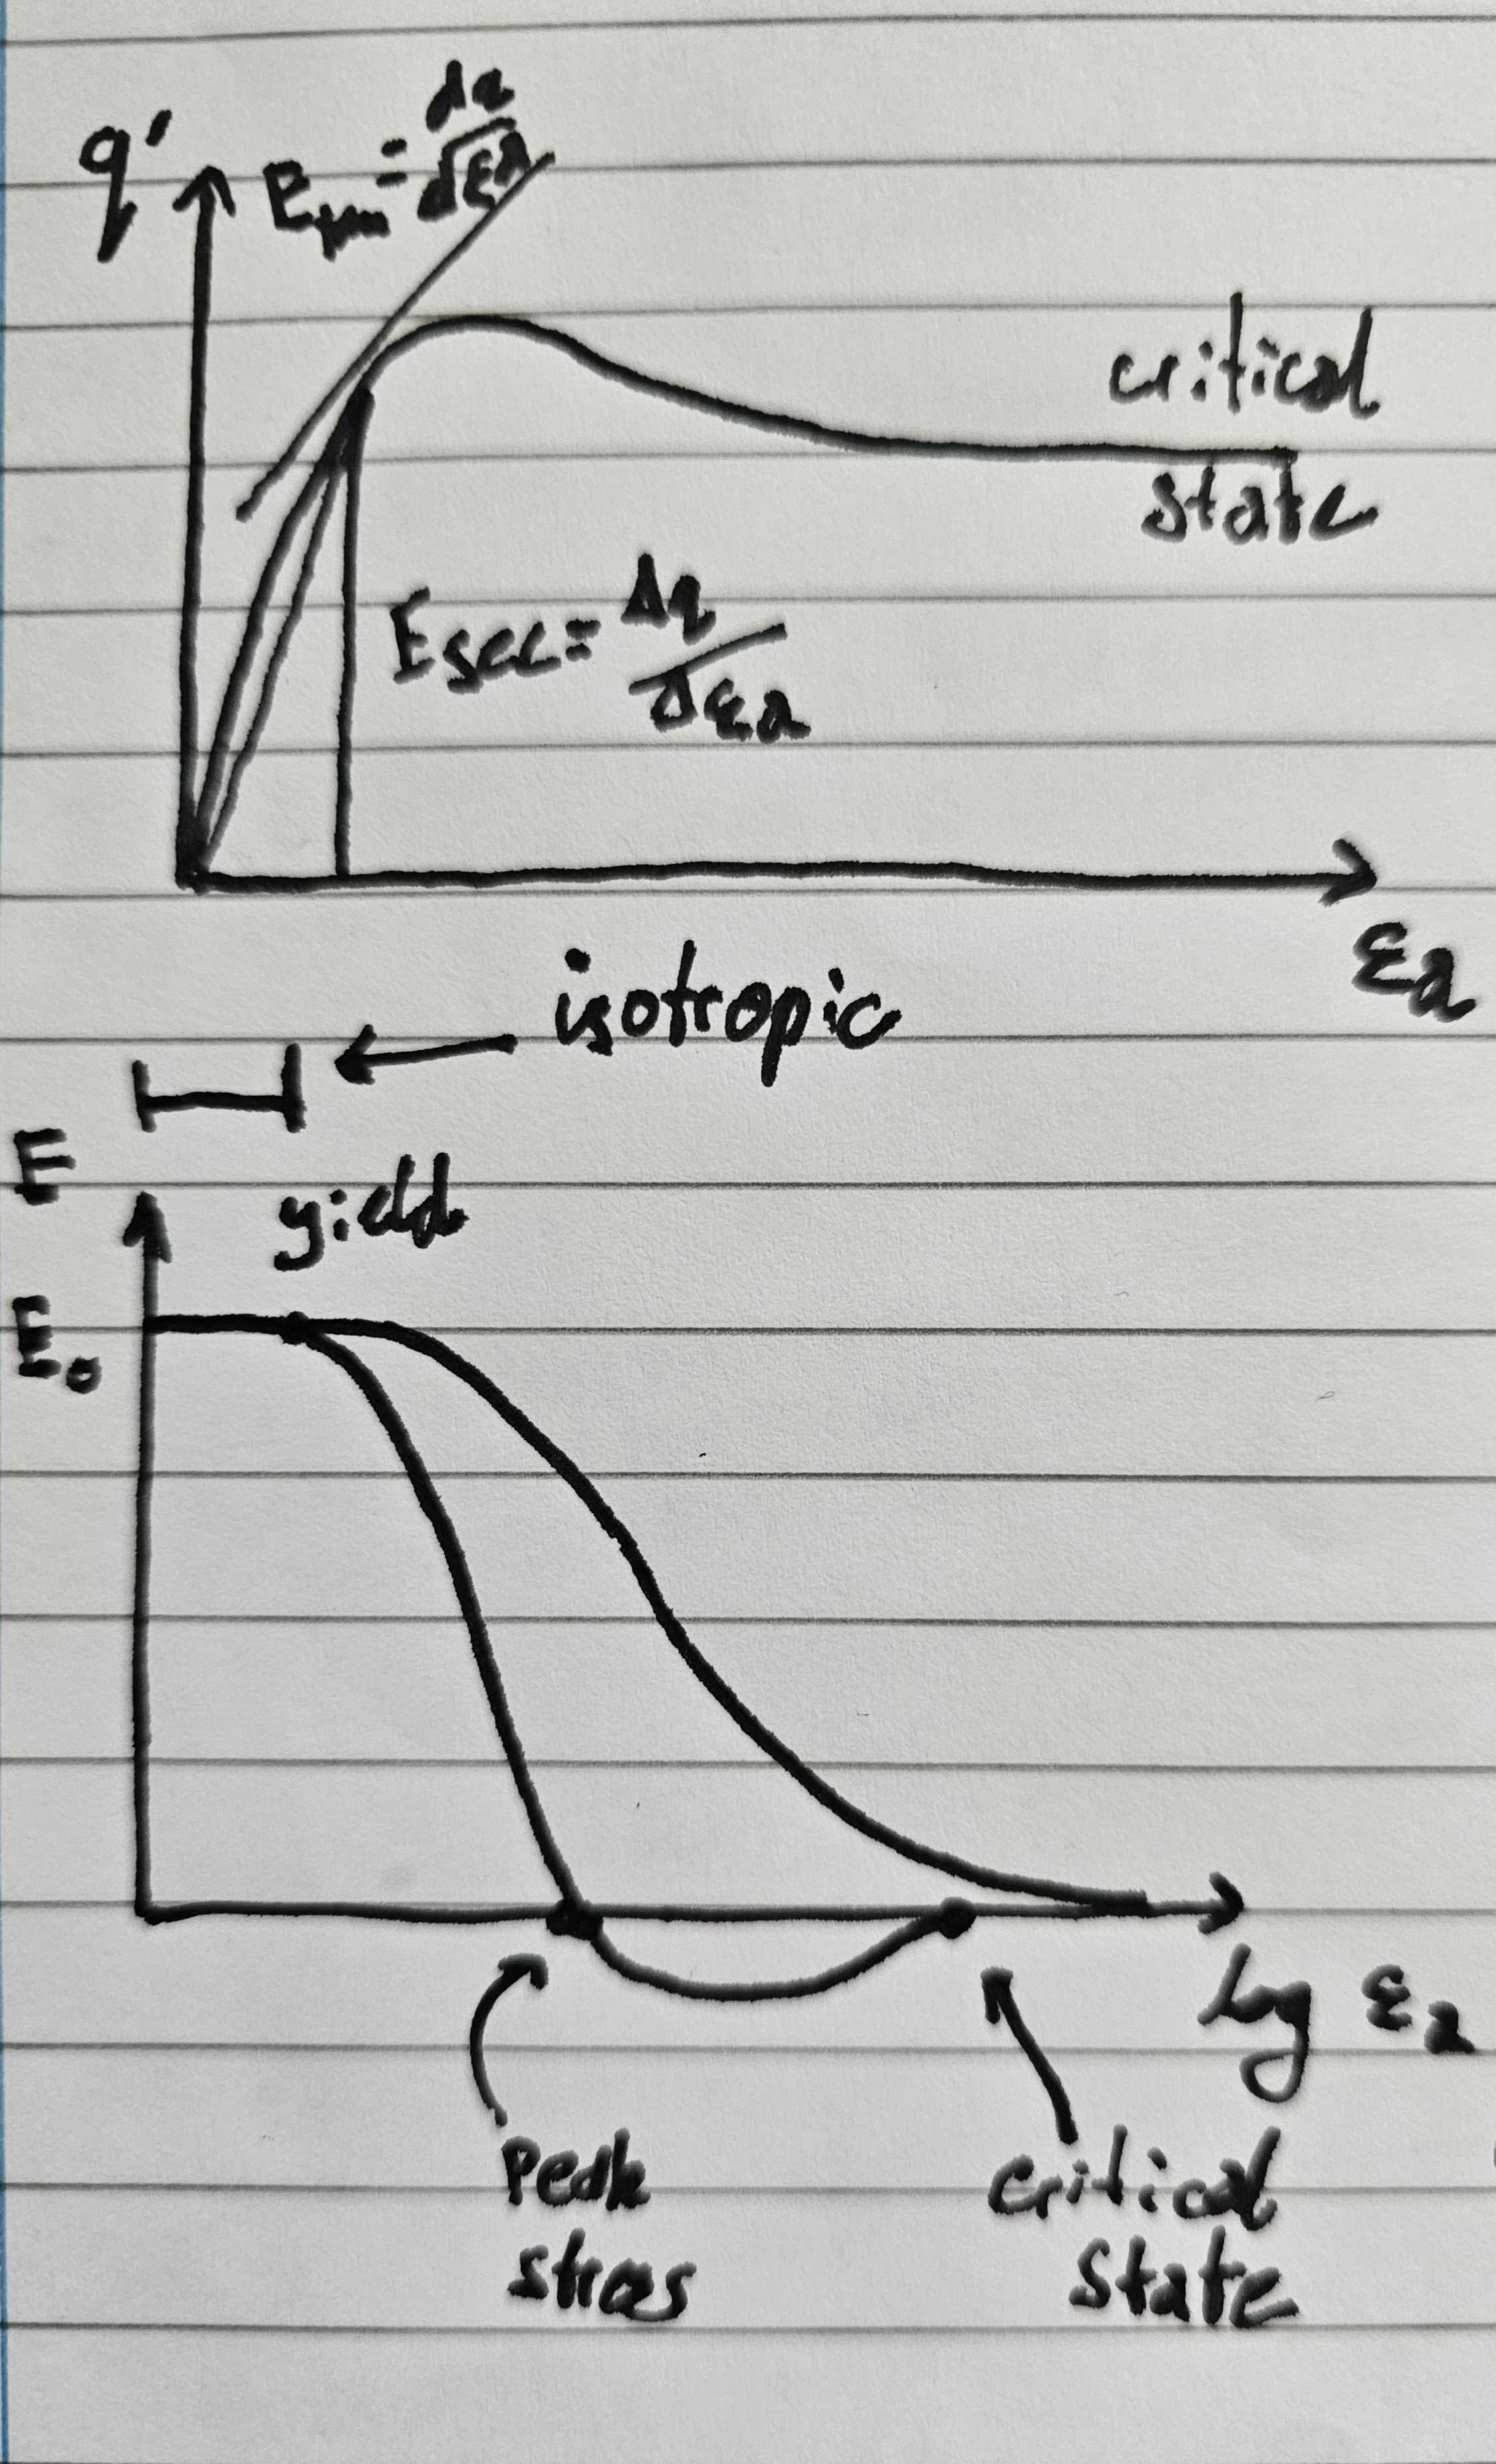 q'
E_tan = dq/dεa
critical
state
Esec = Δq/Δεa
εa
isotropic
E
yield
E₀
log εa
Peak
stress
critical
state